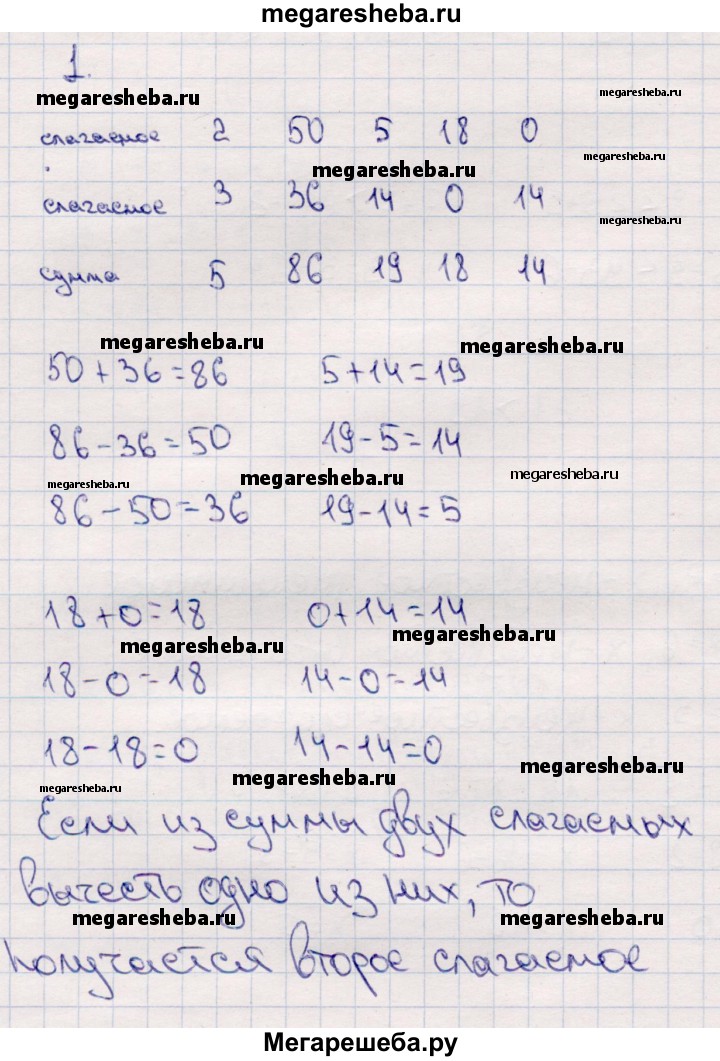 megaresheba.ru
1.
megaresheba.ru
megaresheba.ru
слагаемое 2 50 5 18 0
megaresheba.ru
megaresheba.ru
слагаемое 3 36 14 0 14
megaresheba.ru
сумма 5 86 19 18 14
megaresheba.ru
megaresheba.ru
50+36=86 5+14=19
86-36=50 19-5=14
megaresheba.ru
megaresheba.ru
megaresheba.ru
86-50=36 19-14=5
18+0=18 0+14=14
megaresheba.ru
megaresheba.ru
18-0=18 14-0=14
18-18=0 14-14=0
megaresheba.ru
megaresheba.ru
megaresheba.ru
Если из суммы двух слагаемых
вычесть одно из них, то
megaresheba.ru
megaresheba.ru
megaresheba.ru
получается второе слагаемое
Мегарешеба.ру